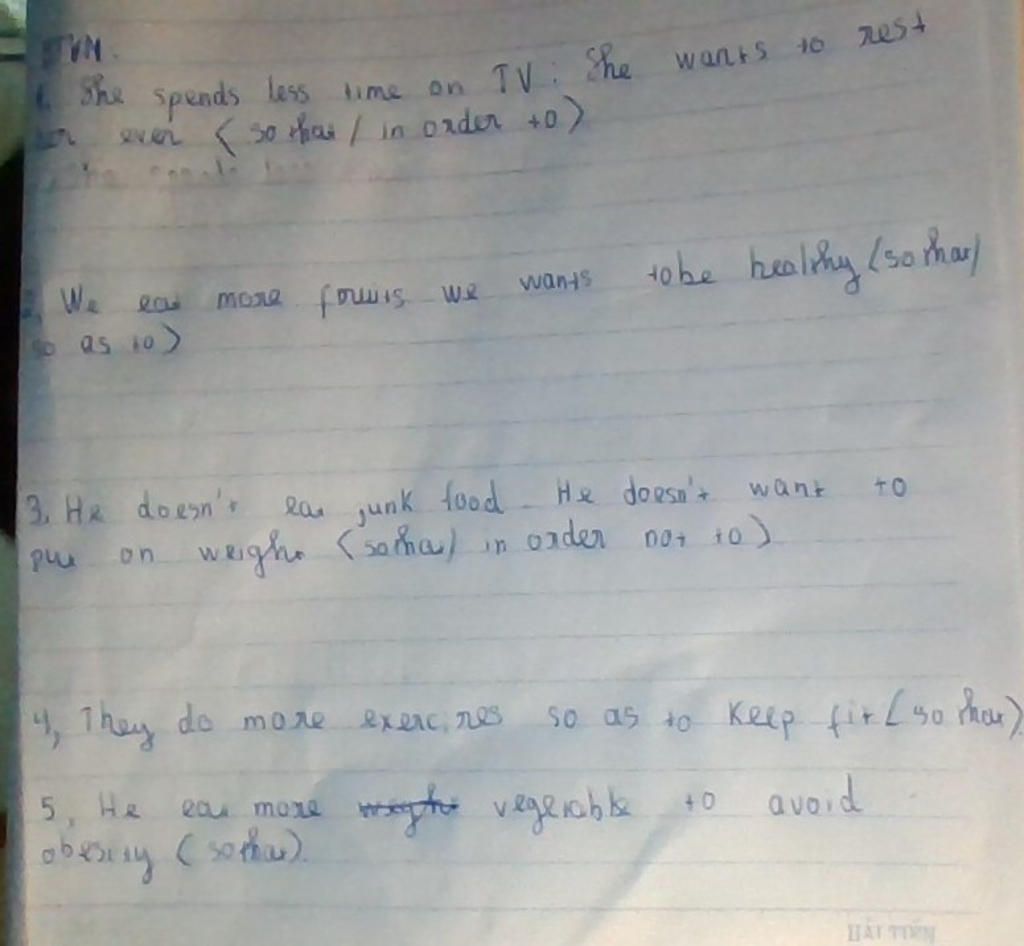 1. She spends less time on TV. She wants to rest
her eyes (so that / in order to)
2, We eat more fruits we wants to be healthy (so that /
so as to)
3, He doesn't eat junk food. He doesn't want to
put on weight (so that / in order not to)
4, They do more exercires so as to keep fit (so that).
5, He eat more vegetable to avoid
obesity (so that).
BẢI TIẾN